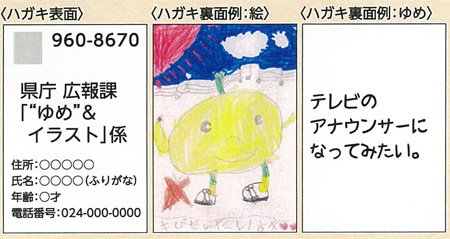 〈ハガキ表面〉
960-8670
県庁 広報課
「“ゆめ”&
イラスト」係
住所:○○○○○
氏名:○○○○(ふりがな)
年齢:○才
電話番号:024-000-0000
〈ハガキ裏面例:絵〉
〈ハガキ裏面例:ゆめ〉
テレビの
アナウンサーに
なってみたい。